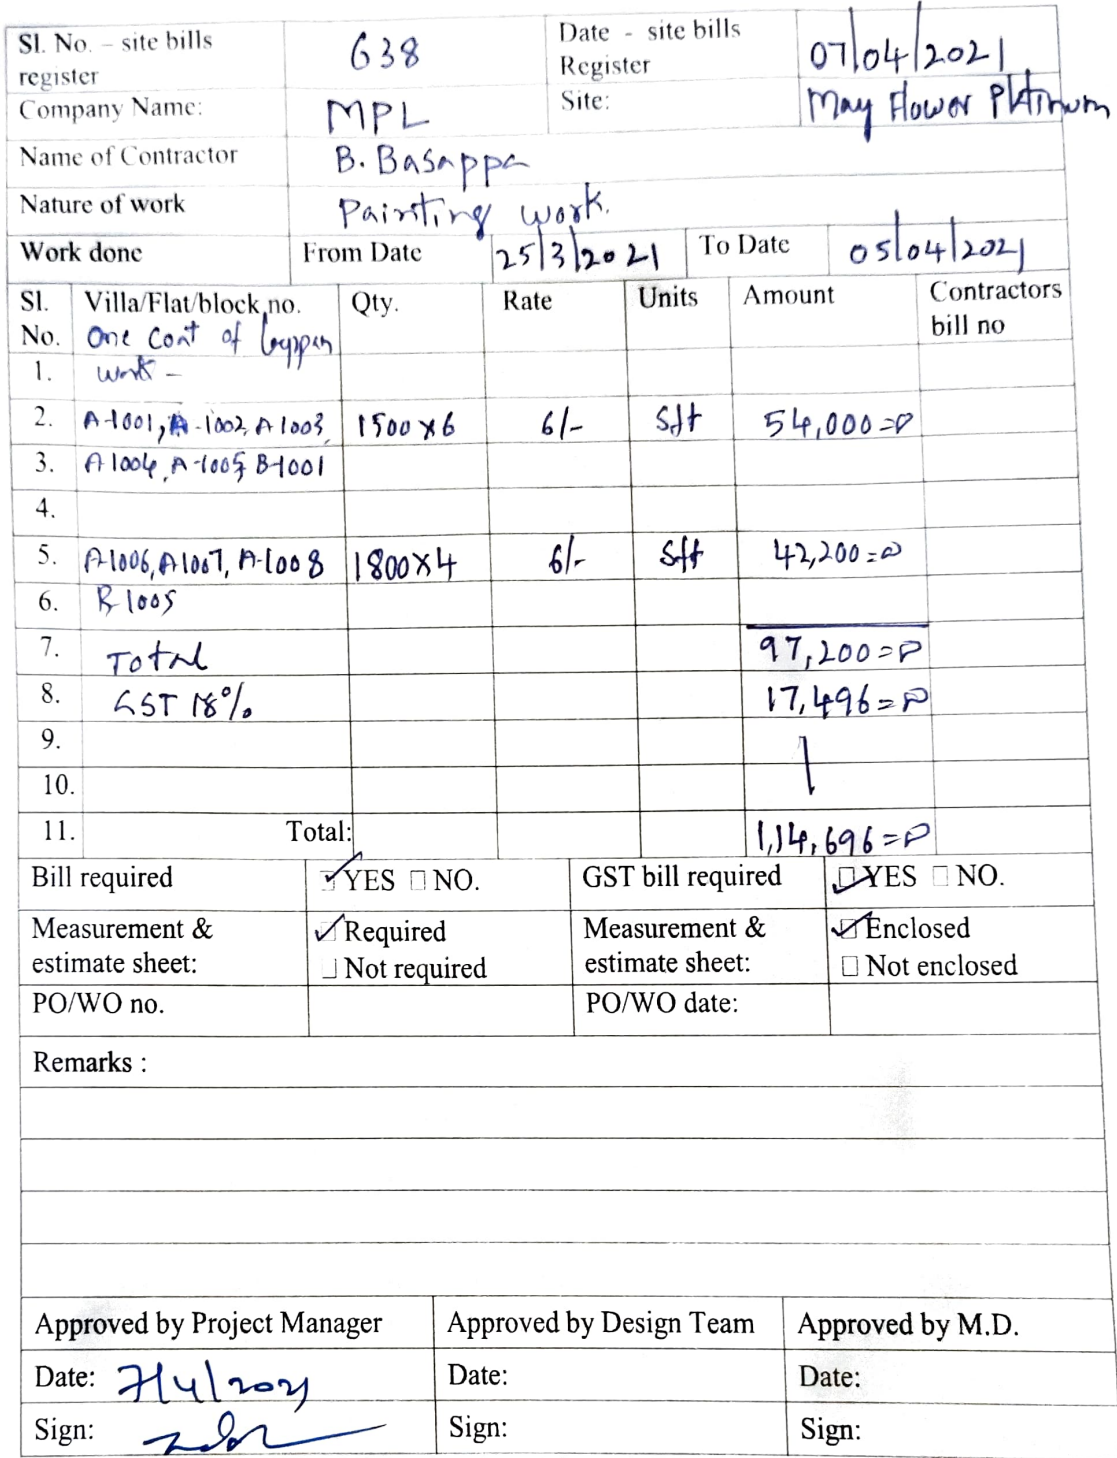 Sl. No. – site bills register 638 Date - site bills Register 07/04/2021
Company Name: MPL Site: May Flower Pltinum
Name of Contractor B. Basappa
Nature of work Painting work.
Work done From Date 25/3/2021 To Date 05/04/2021
Sl. No. Villa/Flat/block no. Qty. Rate Units Amount Contractors bill no
One Coat of Luppam
1. work -
2. A-1001, A-1002, A1003, 1500x6 6/- Sft 54,000=00
3. A1004, A-1005, B-1001
4.
5. A-1006, A1007, A-1008 1800x4 6/- Sft 42,200=00
6. B-1005
7. Total 97,200=00
8. GST 18% 17,496=00
9.
10.
11. Total: 1,14,696=00
Bill required YES NO. GST bill required YES NO.
Measurement & estimate sheet: Required Measurement & estimate sheet: Enclosed
Not required Not enclosed
PO/WO no. PO/WO date:
Remarks :
Approved by Project Manager Approved by Design Team Approved by M.D.
Date: 7/4/2021 Date: Date:
Sign: Sign: Sign: